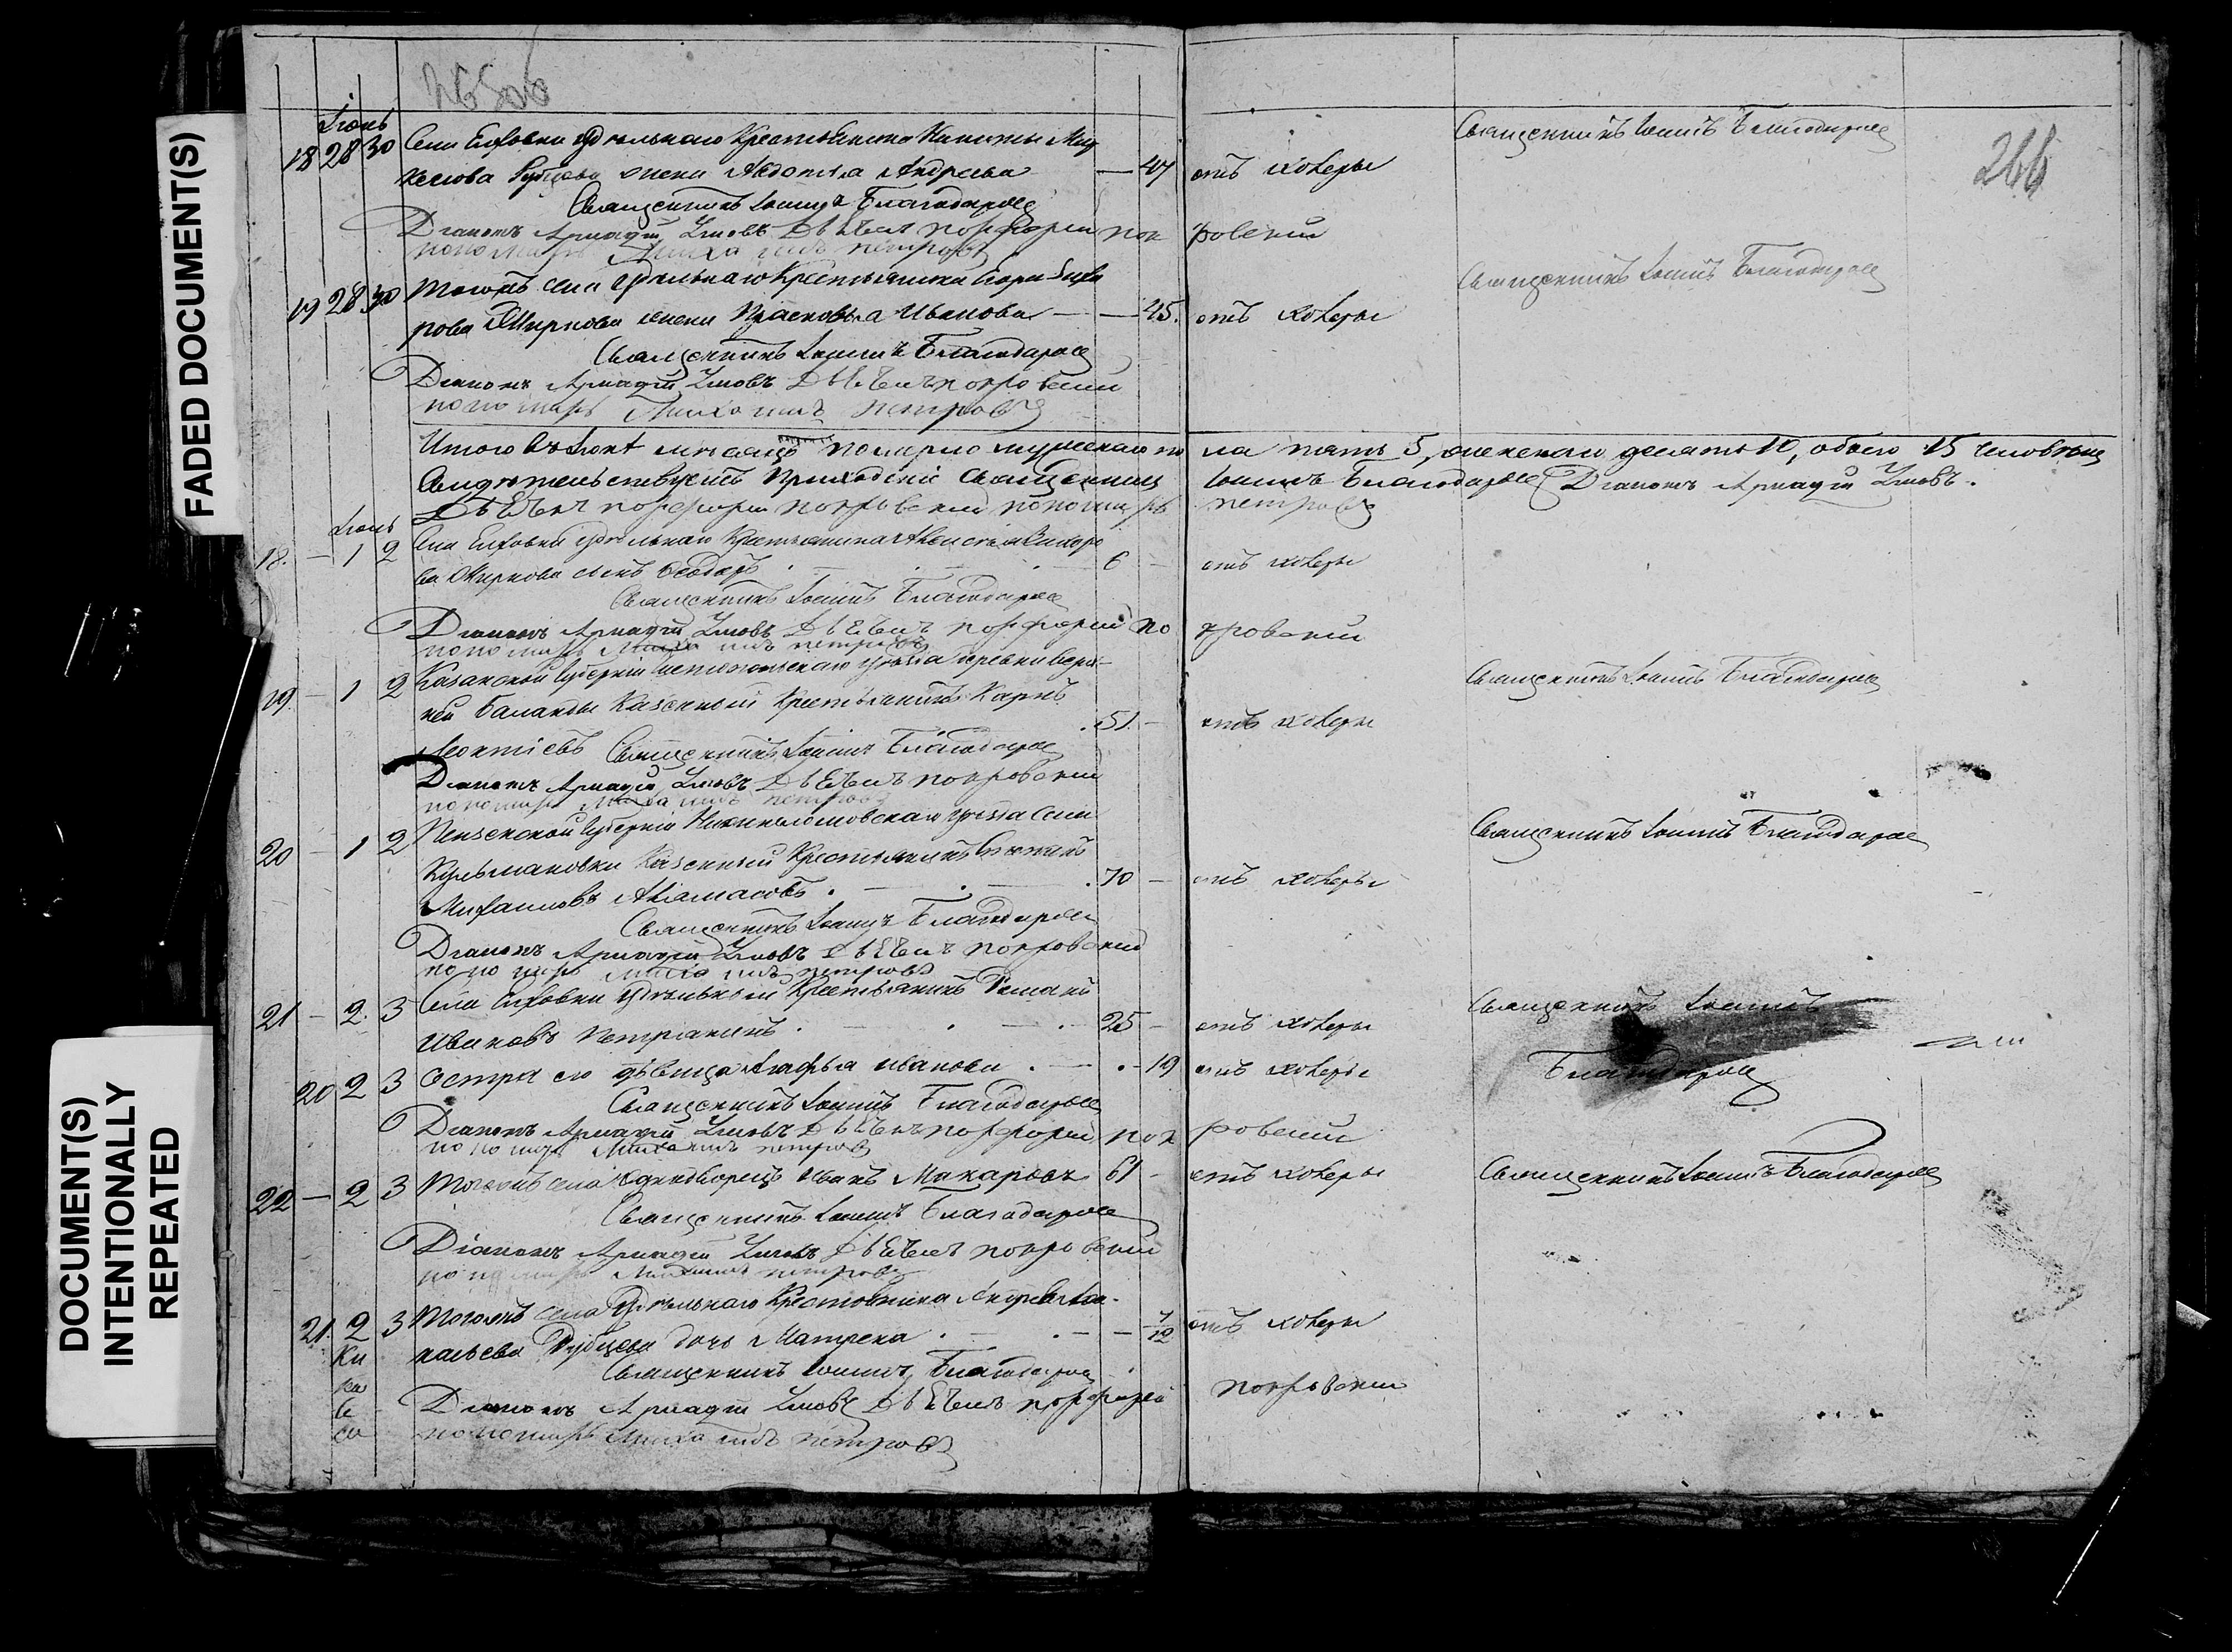 FADED DOCUMENT(S)
DOCUMENT(S)
INTENTIONALLY
REPEATED
265об
266
Іюнь
18 28 30 Села Елховки удѣльнаго Крестьянина Никиты
жена Авдотья Андреева — 47 отъ холеры
Священникъ Іоаннъ Благодаровъ
Священникъ Іоаннъ Благодаровъ
Діаконъ Аркадій Умовъ Дьячекъ Порфирій Покровскій
пономарь Михаилъ Петровъ
19 28 30 Тогожъ села удѣльнаго Крестьянина
Смирнова жена Прасковья Иванова — 45. отъ холеры
Священникъ Іоаннъ Благодаровъ
Священникъ Іоаннъ Благодаровъ
Діаконъ Аркадій Умовъ Дьячекъ Покровскій
пономарь Михаилъ Петровъ
Итого въ Іюнѣ мѣсяцѣ померло мужескаго пола пять 5, женскаго десять 10, обоего 15 человѣкъ
Свидѣтельствуетъ Приходскій Священникъ Іоаннъ Благодаровъ Діаконъ Аркадій Умовъ.
Дьячекъ Порфирій Покровскій пономарь Петровъ
Іюль
18. — 1 2 Села Елховки удѣльнаго Крестьянина
Смирнова сынъ Ѳеодоръ 6 — отъ холеры
Священникъ Іоаннъ Благодаровъ
Діаконъ Аркадій Умовъ Дьячекъ Порфирій Покровскій
пономарь Михаилъ Петровъ
19 — 1 2 Казанской Губерніи Чистопольскаго уѣзда деревни Верх-
ней Баланды Казенный Крестьянинъ Карпъ
Леонтіевъ 51. — отъ холеры
Священникъ Іоаннъ Благодаровъ
Священникъ Іоаннъ Благодаровъ
Діаконъ Аркадій Умовъ Дьячекъ Покровскій
пономарь Михаилъ Петровъ
20 — 1 2 Пензенской Губерніи Нижнеломовскаго уѣзда Села
Казенный Крестьянинъ
70 — отъ холеры
Священникъ Іоаннъ Благодаровъ
Священникъ Іоаннъ Благодаровъ
Діаконъ Аркадій Умовъ Дьячекъ Покровскій
пономарь Михаилъ Петровъ
21 — 2. 3 Села Елховки Удѣльный Крестьянинъ Романъ
Ивановъ 25 — отъ холеры
Священникъ Іоаннъ
20 2 3 Сестра его дѣвица Агафья Иванова — 19 отъ холеры
Благодаровъ
Священникъ Іоаннъ Благодаровъ
Діаконъ Аркадій Умовъ Дьячекъ Порфирій Покровскій
пономарь Михаилъ Петровъ
22 — 2 3 Тогожъ села однодворецъ Иванъ Макаровъ 61 — отъ холеры
Священникъ Іоаннъ Благодаровъ
Священникъ Іоаннъ Благодаровъ
Діаконъ Аркадій Умовъ Дьячекъ Покровскій
пономарь Михаилъ Петровъ
21. 2 3 Тогожъ села Удѣльнаго Крестьянина
дочь Матрена — 7/12 отъ холеры
Священникъ Іоаннъ Благодаровъ
Діаконъ Аркадій Умовъ Дьячекъ Порфирій Покровскій
пономарь Михаилъ Петровъ